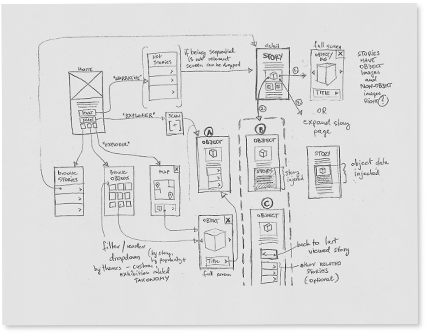 HOME
"NARRATIVE"
HOT
STORIES
if being sequential
is not relevant
screen can be dropped
detail
STORY
full screen
OBJECT
TITLE
STORIES
HAVE
OBJECT
Images
and
NON-OBJECT
images
Right?
OR
expand story
page
"EXPLORER"
SCAN
"EXPLORE"
browse
STORIES
BROWSE
OBJECTS
MAP
A
OBJECT
B
OBJECT
STORIES
story
injected
STORY
object data
injected
C
OBJECT
back to last
viewed story
OTHER RELATED
STORIES
(optional)
OBJECT
TITLE
full screen
filter/
dropdown
by story,
by popularity
by themes - custom
exhibition related
TAXONOMY